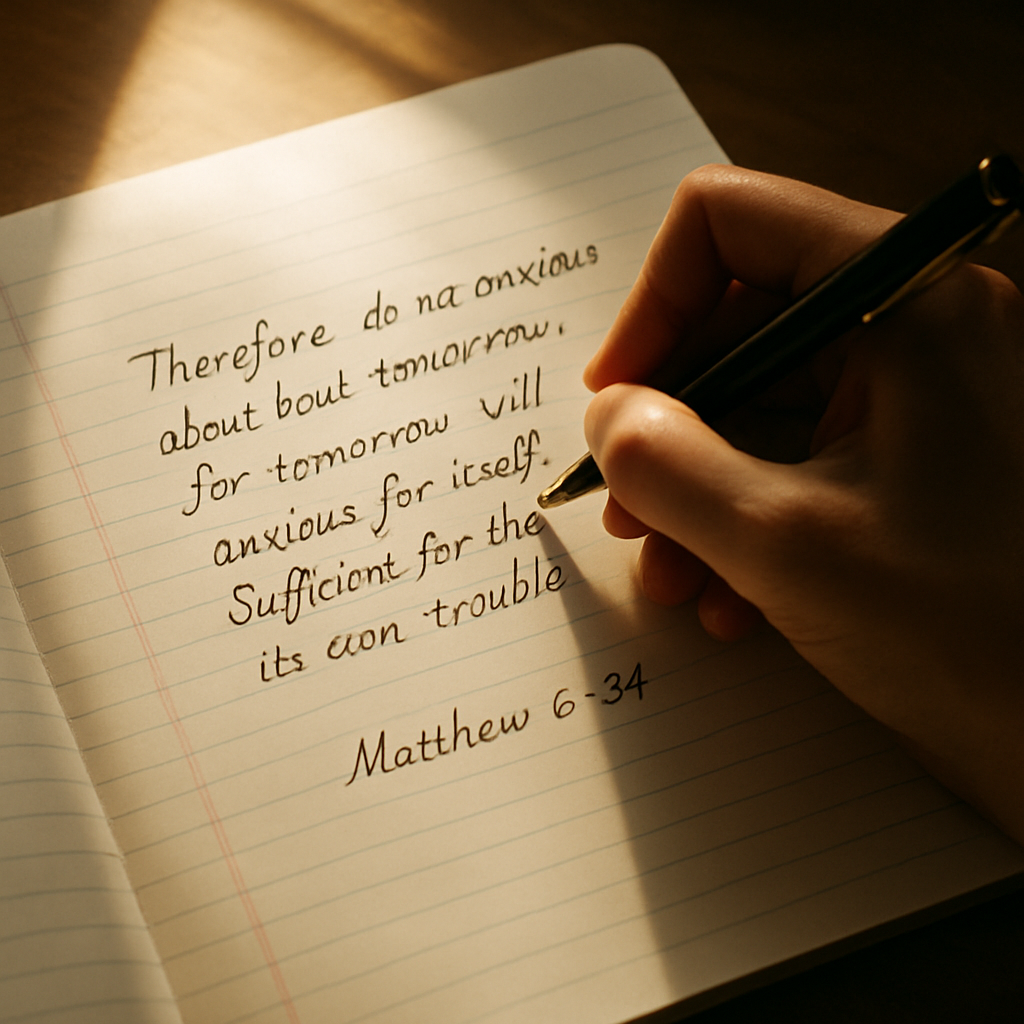 Therefore do na onxious
about bout tomorrow,
for tomorrow vill
anxious for itself.
Sufficiont for the
its own trouble
Matthew 6-34